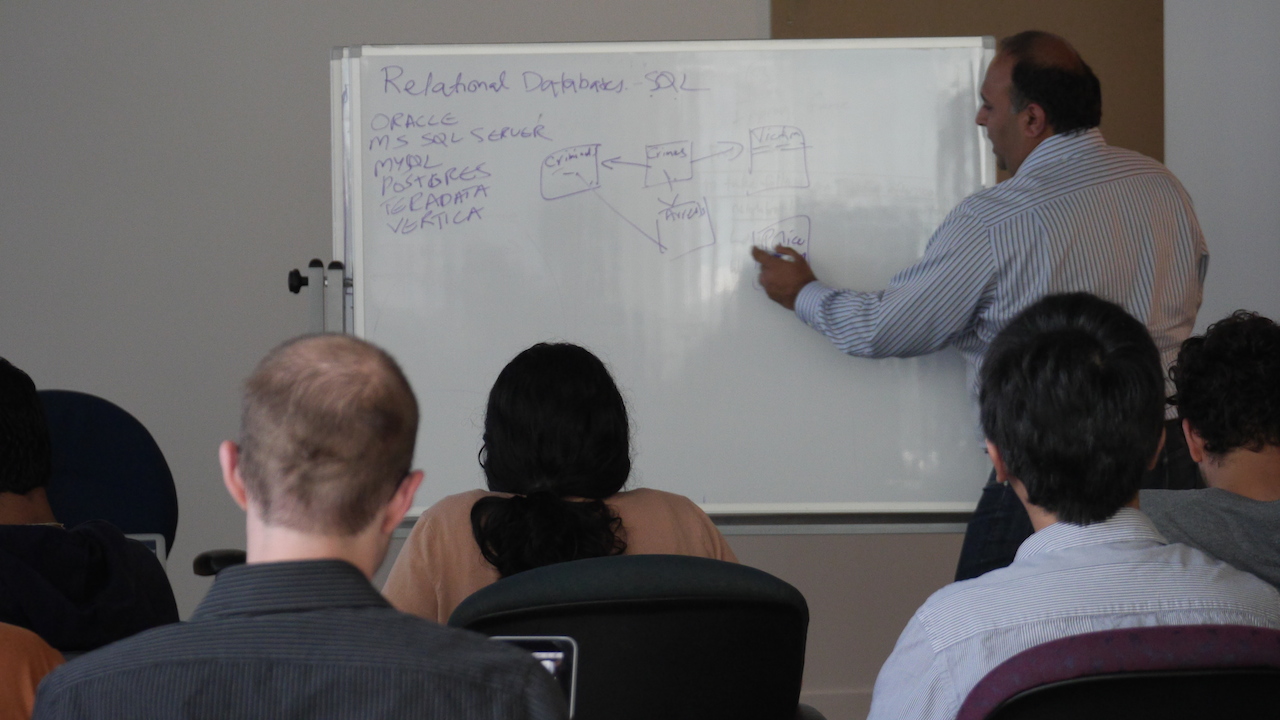 Relational Databases - SQL
ORACLE
MS SQL SERVER
MYSQL
POSTGRES
TERADATA
VERTICA
Crimes
Victim
Police